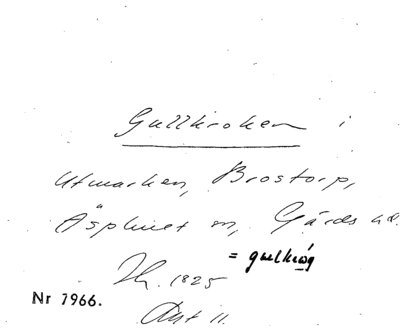 Gullkroken i
Utmarken, Brostorp,
Äsphult sn, Gärds hd.
= gullkróg
1825
Nr 7966.
Akt 11.